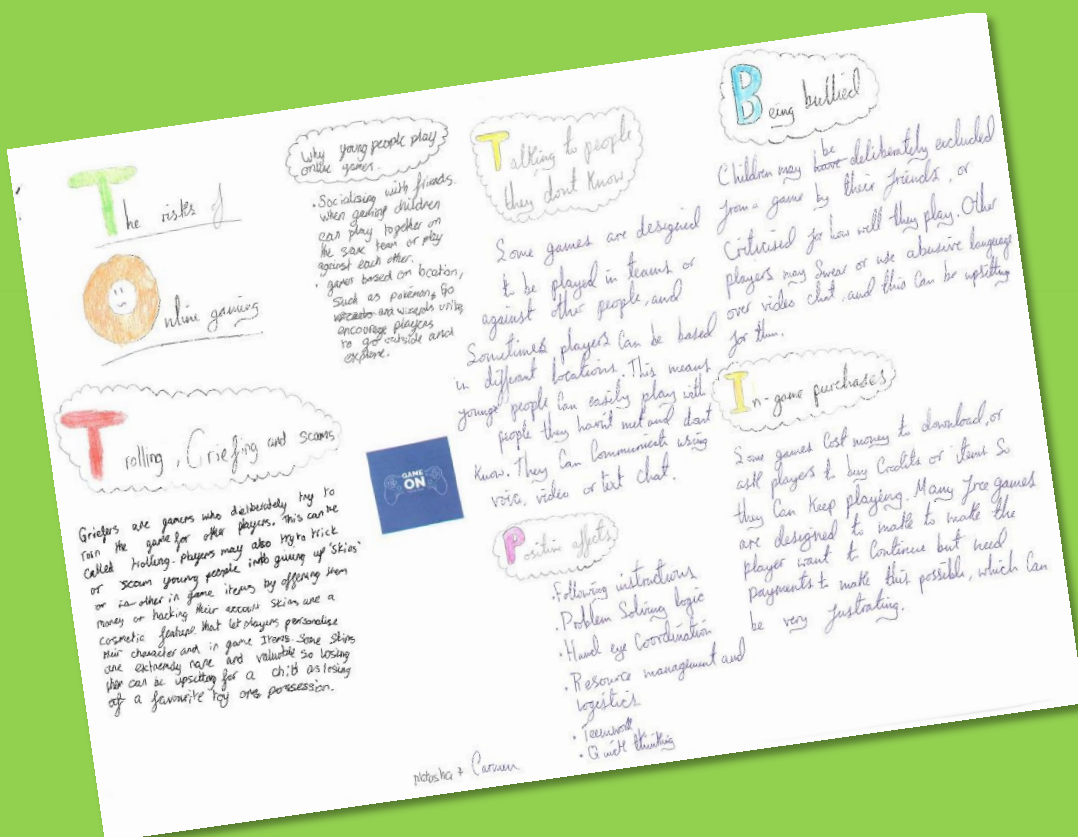 The risks of
Online gaming
Trolling, Griefing and scams
Griefers are gamers who dieliberately try to
roin the game for other players. This can be
called trolling. Players may also try to trick
or scam young people into giving up 'skins'
or in other in game items by offering them
money or hacking their account skins are a
cosmetic feature that let players personalise
their character and in game Items. Some skins
are extremely rare and valuable so losing
them can be upsetting for a child as losing
of a favourite toy or possession.
Why young people play
online games.
• Socialising with friends.
when gaming children
can play together on
the same team or play
against each other.
• games based on location,
such as pokemon Go
and wizards unite
encourage players
to go outside and
explore.
GAME
ON
Talking to people
they dont know
Some games are designed
to be played in teams or
against other people, and
Sometimes players can be based
in diffirant locations. This means
younge people can easily play with
people they havn't met and dont
know. They Can Communicate using
voice, video or text chat.
Positive affects
• Following instructions
• Problem Solving logic
• Hand eye Coordination
• Resource management and
logistics
• Teamwork
• Quick thinking
Natasha + Carmen
Being bullied
Children may have be deliberately excluded
from a game by their friends, or
Criticised for how well they play. Other
players may Swear or use abusive language
over video chat, and this Can be upsetting
for them.
In-game purchases
Some games Cost money to download, or
ask players to buy Credits or items So
they Can Keep playeing. Many free games
are designed to make to make the
player want to Continue but need
payments to make this possible, which Can
be very frustrating.